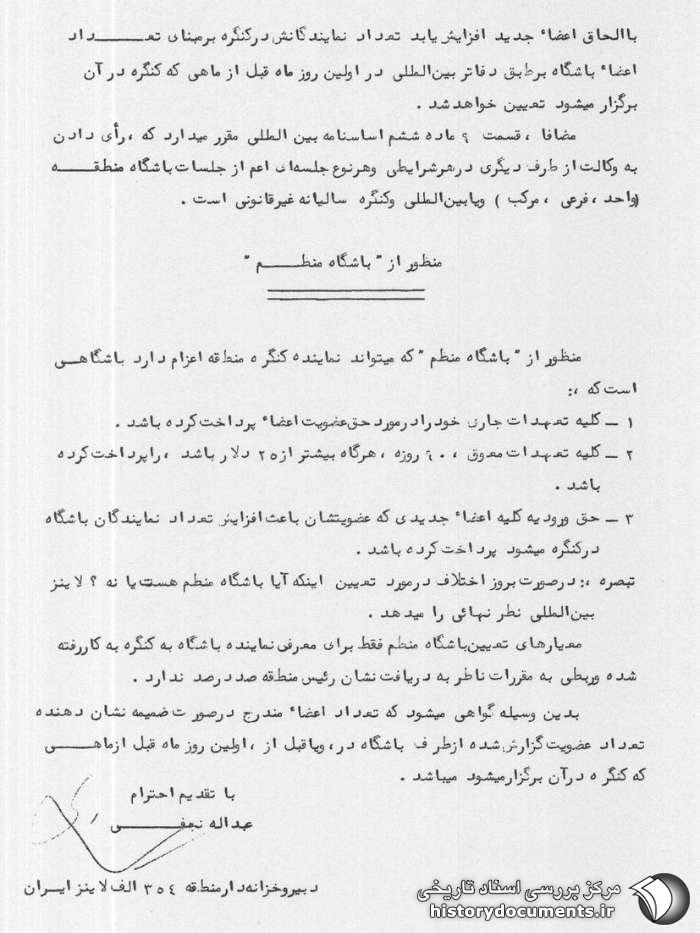 با الحاق اعضاء جدید افزایش یابد تعداد نمایندگانش در کنگره بر مبنای تعـــــداد
اعضاء باشگاه بر طبق دفاتر بین‌المللی در اولین روز ماه قبل از ماهی که کنگره در آن
برگزار میشود تعیین خواهد شد .
مضافا ، قسمت ۹ ماده ششم اساسنامه بین المللی مقرر میدارد که ، رأی دادن
به وکالت از طرف دیگری در هر شرایطی و هر نوع جلسه‌ای اعم از جلسات باشگاه منطقـــــه
(واحد ، فرعی ، مرکب ) و یا بین‌المللی و کنگره سالیانه غیرقانونی است .
منظور از " باشگاه منظـــــم "
منظور از " باشگاه منظم " که میتواند نماینده کنگره منطقه اعزام دارد باشگاهــی
است که :
۱ ــ کلیه تعهدات جاری خود را در مورد حق عضویت اعضاء پرداخت کرده باشد .
۲ ــ کلیه تعهدات معوق ، ۹۰ روزه ، هرگاه بیشتر از ۲۵ دلار باشد ، را پرداخت کرده
باشد .
۳ ــ حق ورودیه کلیه اعضاء جدیدی که عضویتشان باعث افزایش تعداد نمایندگان باشگاه
در کنگره میشود پرداخت کرده باشد .
تبصره : در صورت بروز اختلاف در مورد تعیین اینکه آیا باشگاه منظم هست یا نه ؟ لاینز
بین‌المللی نظر نهائی را میدهد .
معیارهای تعیین باشگاه منظم فقط برای معرفی نماینده باشگاه به کنگره به کار رفته
شده و ربطی به مقررات ناظر به دریافت نشان رئیس منطقه صد در صد ندارد .
بدین وسیله گواهی میشود که تعداد اعضاء مندرج در صورت ضمیمه نشان دهنده
تعداد عضویت گزارش شده از طرف باشگاه در ، و یا قبل از ، اولین روز ماه قبل از ماهـــی
که کنگره در آن برگزار میشود میباشد .
با تقدیم احترام
عبداله نجفـــــی
دبیر و خزانه‌دار منطقه ۳۵۴ الف لاینز ایران
مرکز بررسی اسناد تاریخی
historydocuments.ir